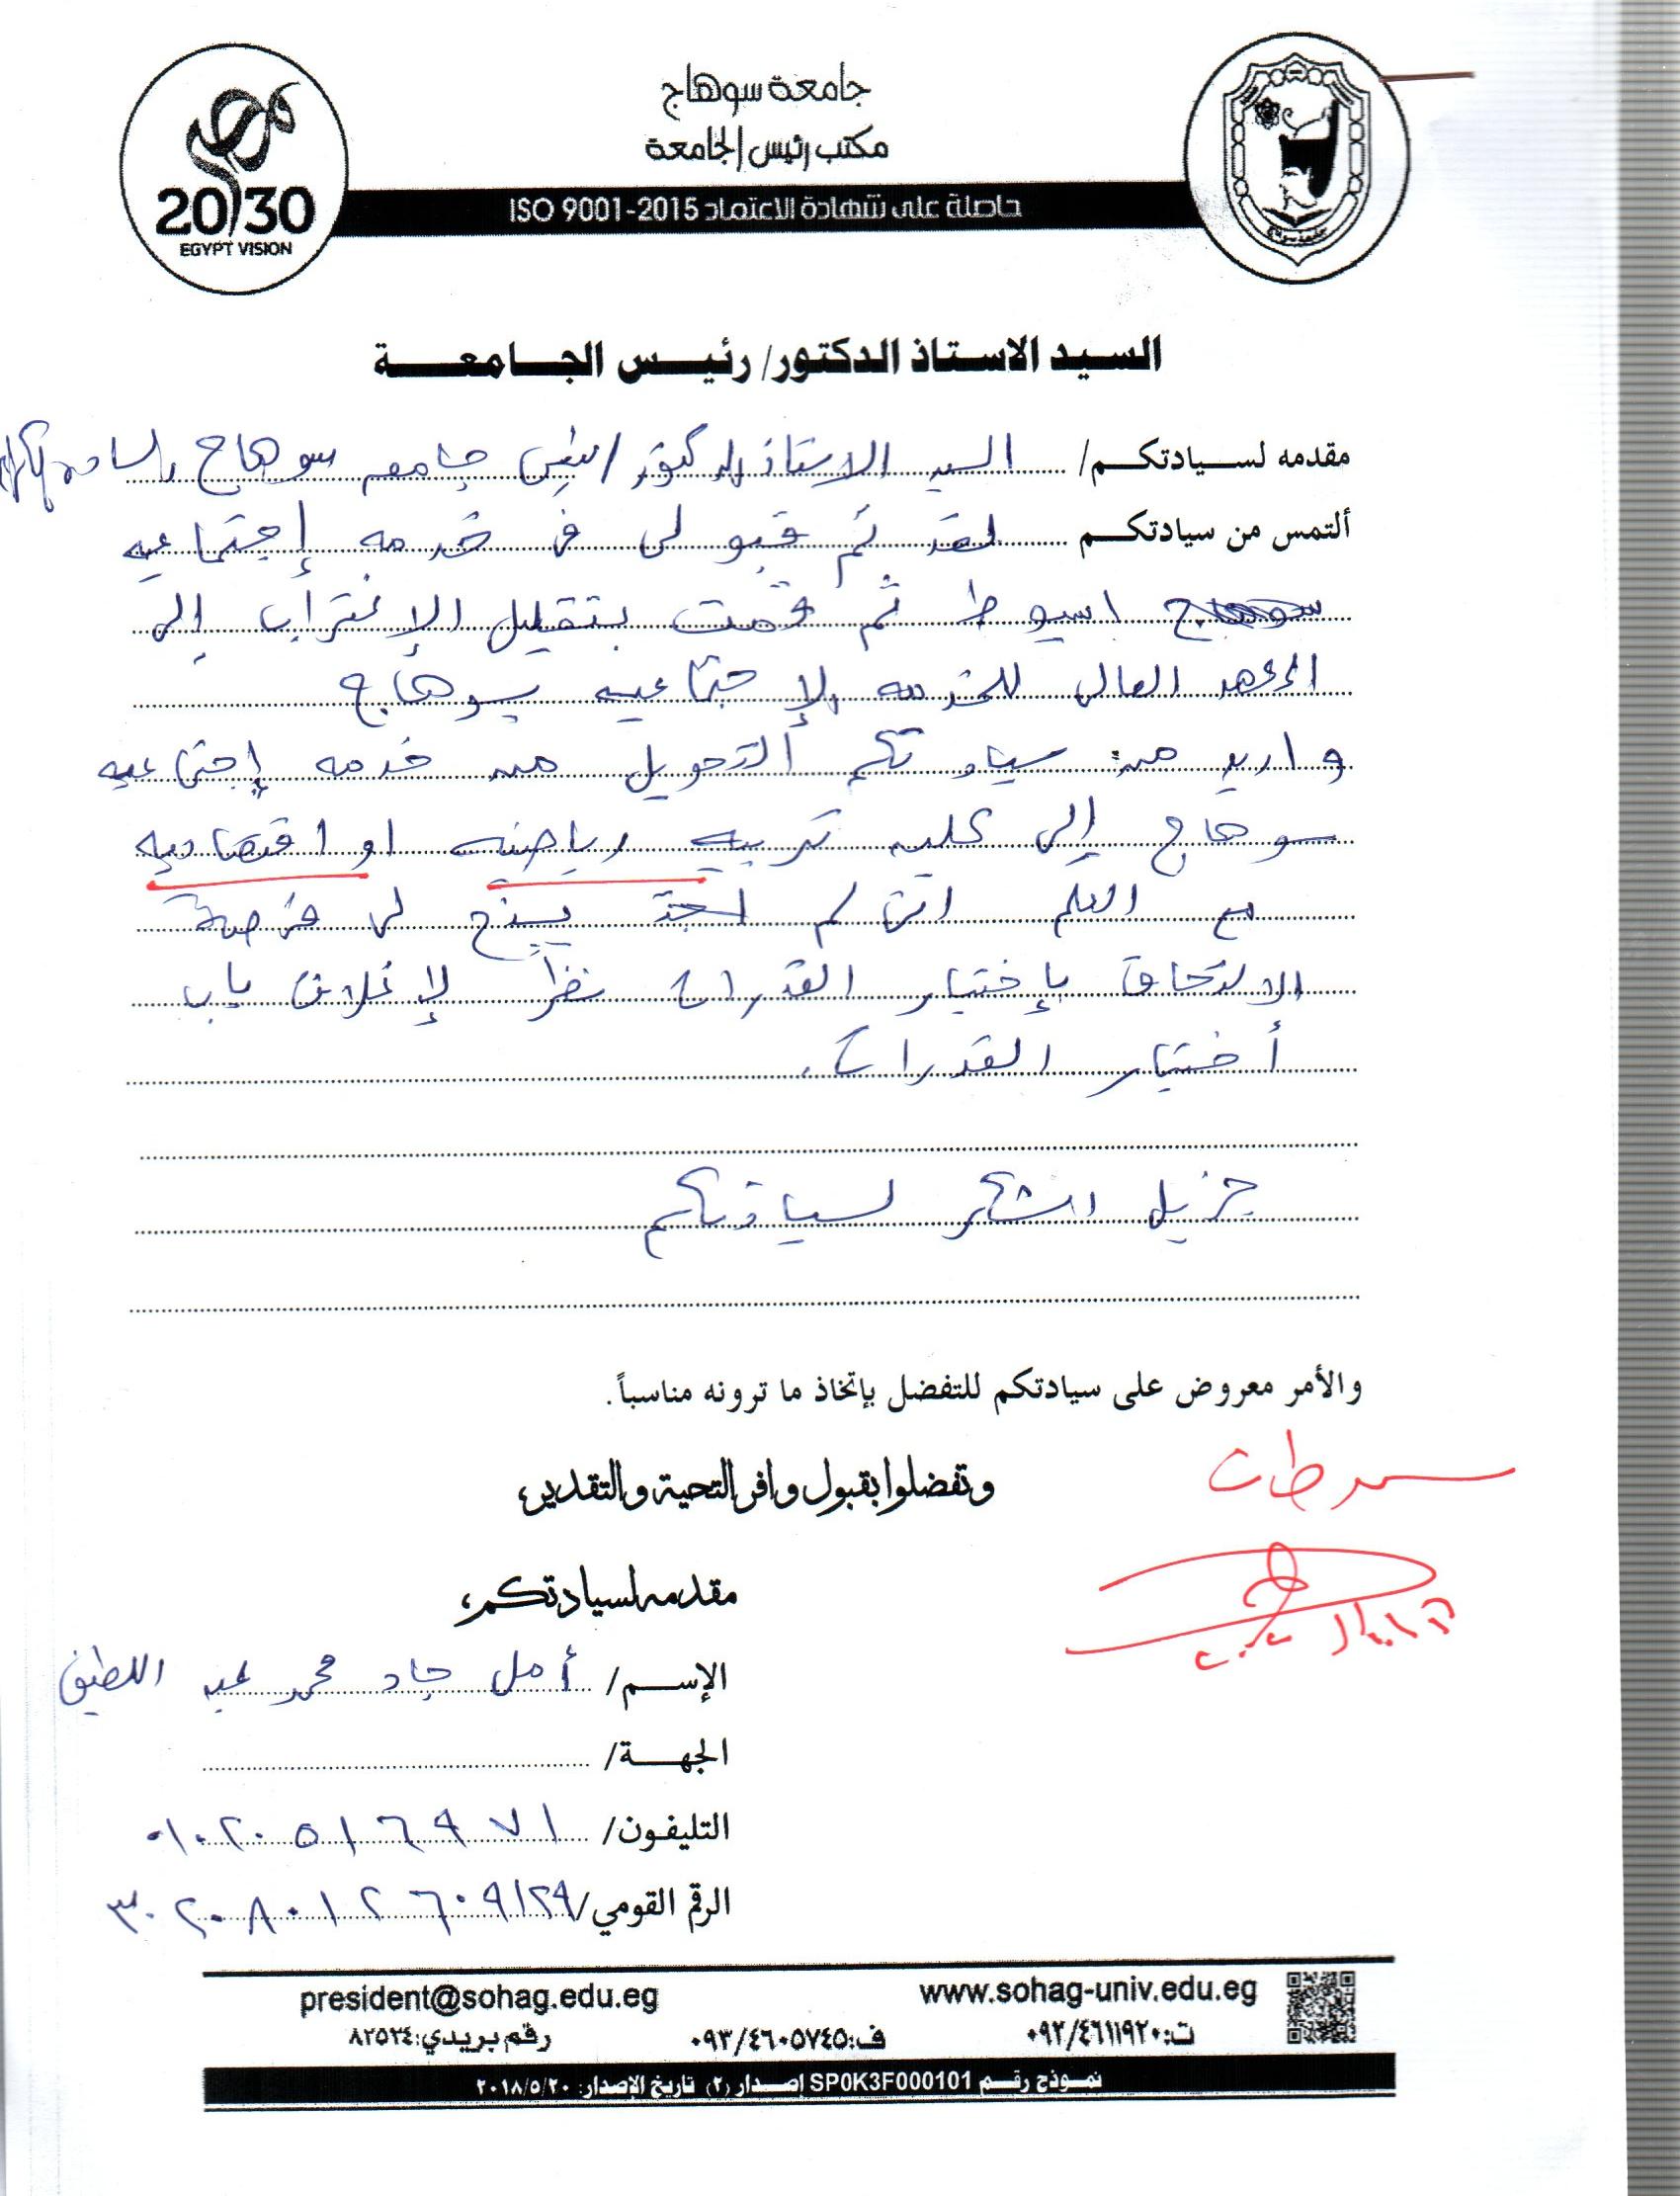 جامعة سوهاج
مكتب رئيس الجامعة
حاصلة على شهادة الاعتماد ISO 9001-2015
2030
EGYPT VISION
السيد الاستاذ الدكتور/ رئيس الجامعة
مقدمه لسيادتكم/ السيد الاستاذ الدكتور / رئيس جامعه سوهاج
ألتمس من سيادتكم لقد تم قبولى فى خدمه إجتماعيه
اسيوط ثم قمت بتقليل الإغتراب إلى
المعهد العالى للخدمه الإجتماعيه بسوهاج
واريد من سيادتكم التحويل من خدمه إجتماعيه
سوهاج إلى كليه تربيه رياضيه او اقتصاديه
مع العلم انى لم يسنح لى فرصة
الالتحاق بإختبار القدرات نظراً لإغلاق باب
أختبار القدرات.
جزيل الشكر لسيادتكم
والأمر معروض على سيادتكم للتفضل بإتخاذ ما ترونه مناسباً.
وتفضلوا بقبول وافر التحية والتقدير،
مقدمه لسيادتكم،
الإسم/ أمل جاد محمد عبد اللطيف
الجهة/
التليفون/ ٠١٠٢٠٥١٦٩٧١
الرقم القومي/ ٣٠٢٠٨٠١٢٦٠٩١٢٩
president@sohag.edu.eg www.sohag-univ.edu.eg
ت:٠٩٣/٤٦١١٩٢٠ ف:٠٩٣/٤٦٠٥٧٤٥ رقم بريدي:٨٢٥٢٤
نموذج رقم SP0K3F000101 اصدار (٢) تاريخ الإصدار: ٢٠١٨/٥/٢٠